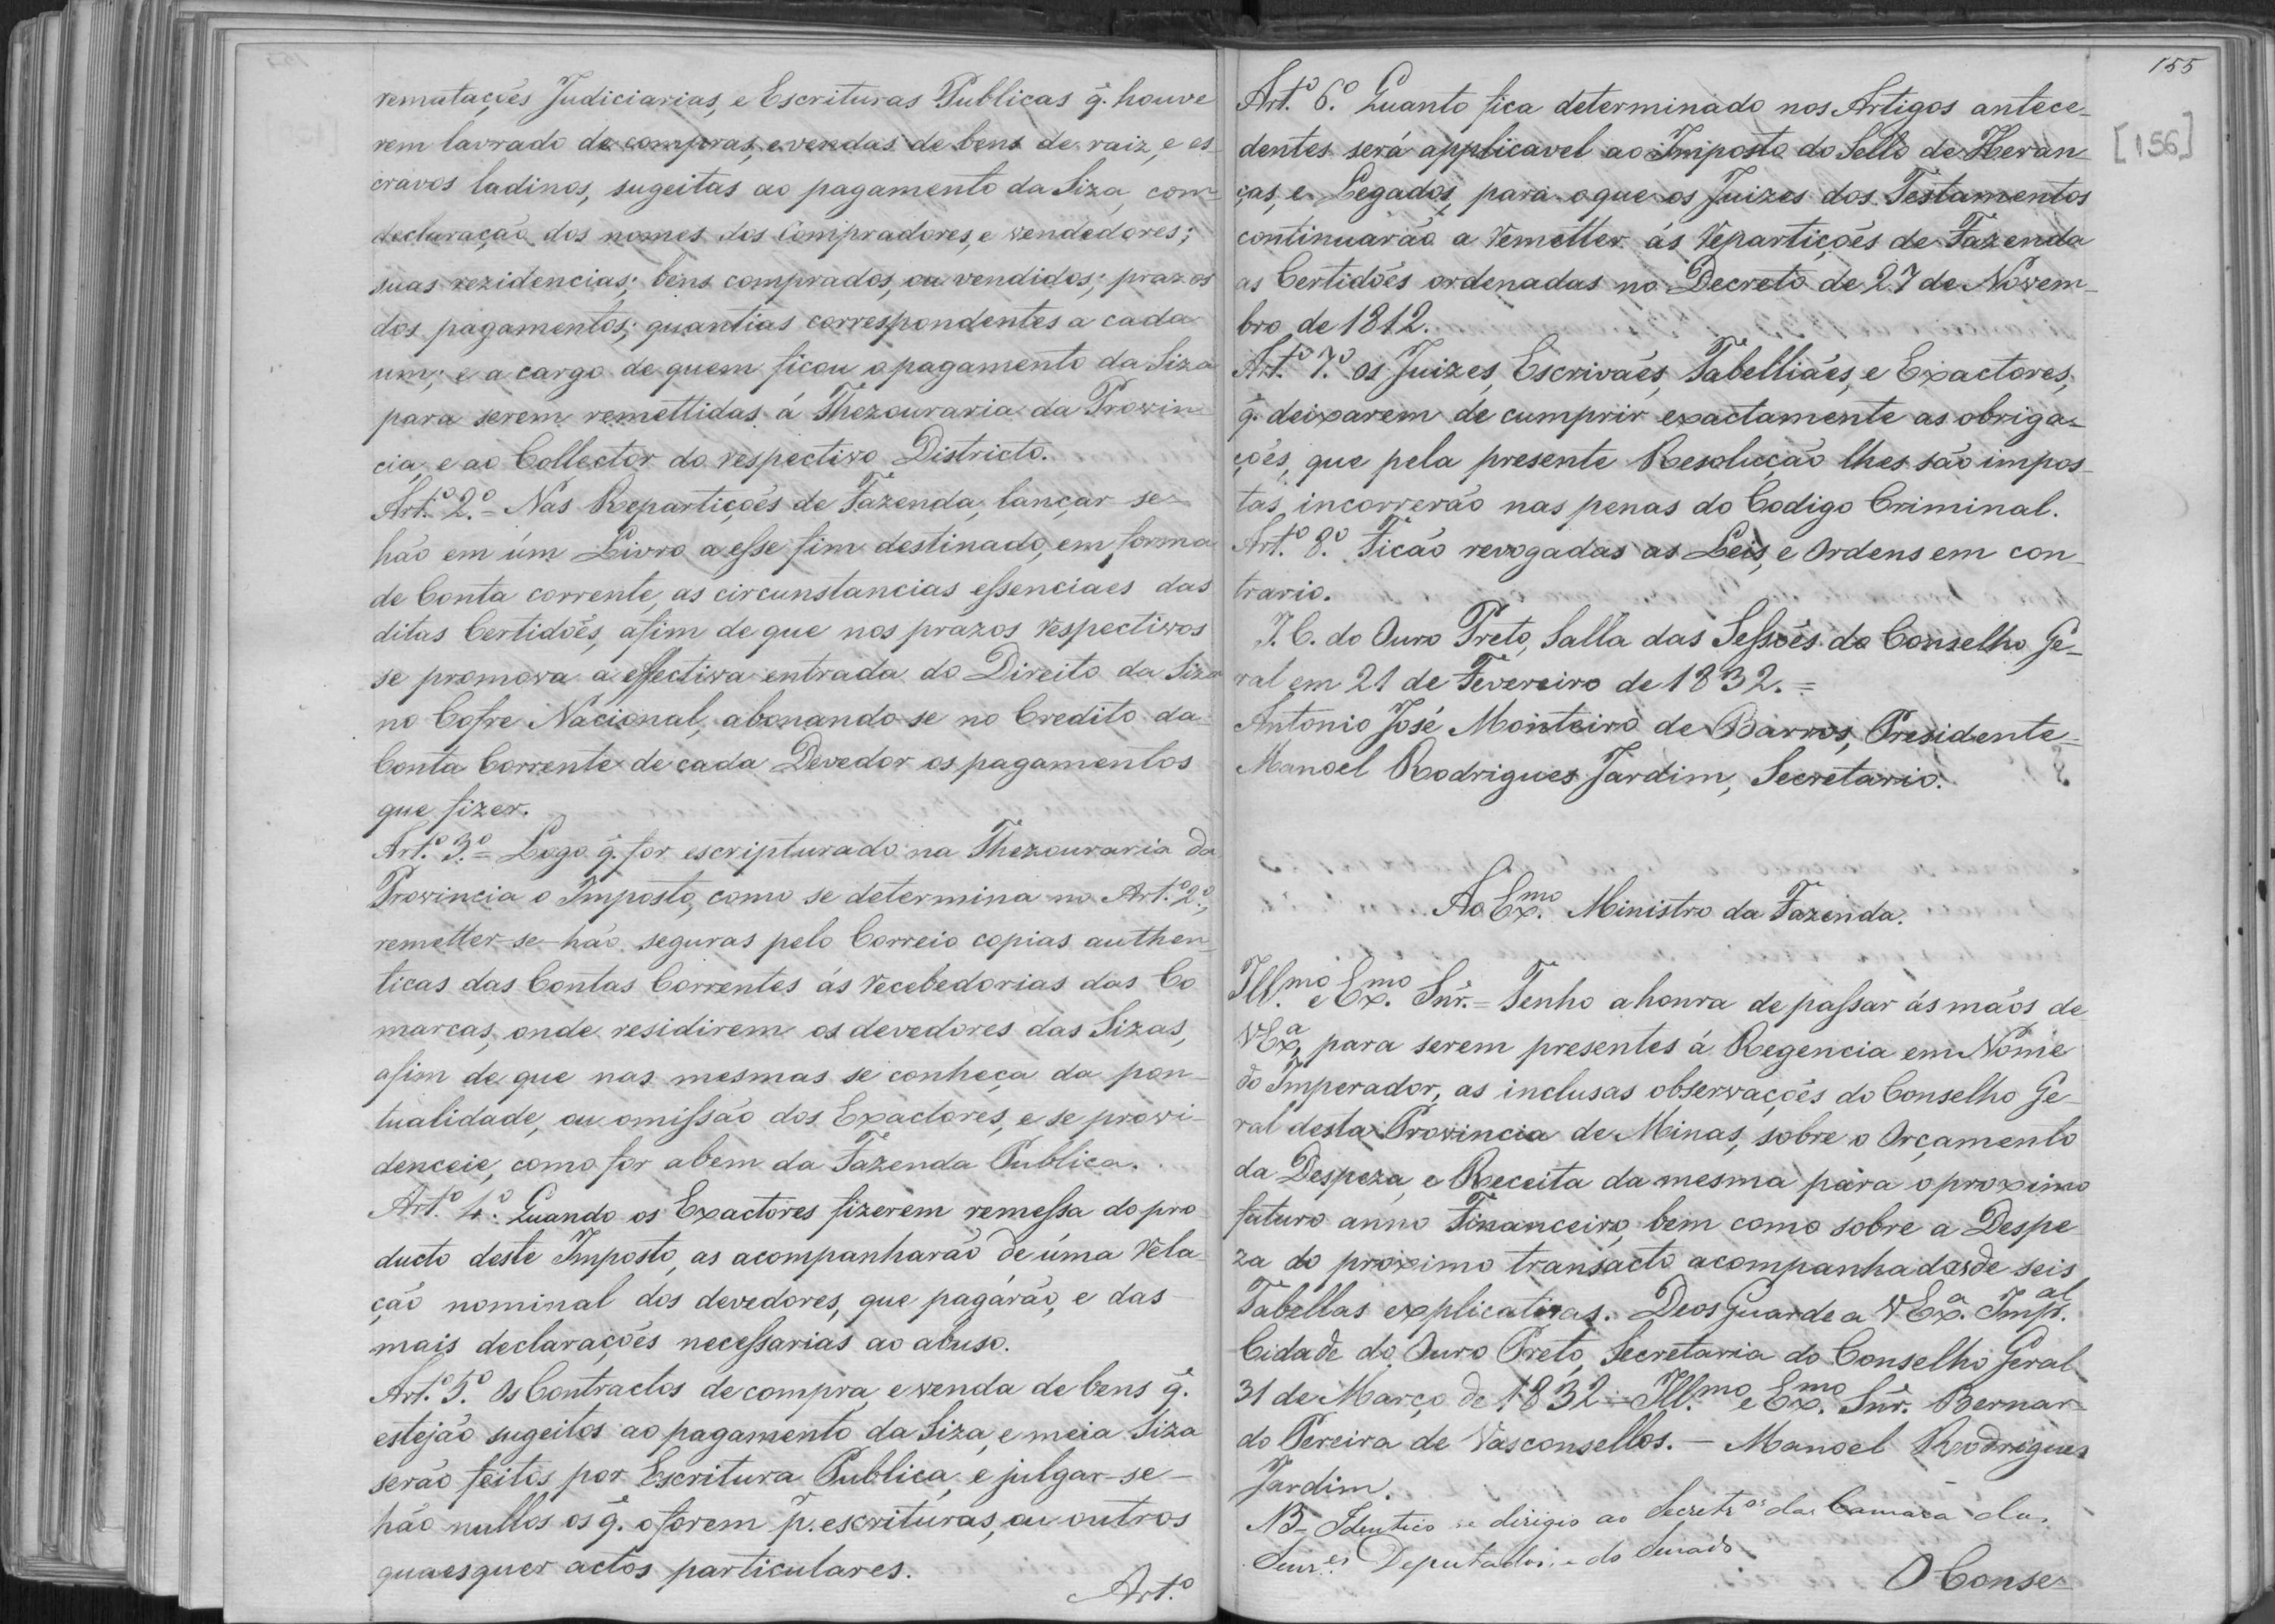 rematações Judiciarias, e Escrituras Publicas q̃. houve
rem lavrado de compras, e vendas de bens de raiz, e es
cravos ladinos, sugeitas ao pagamento da Siza, com
declaração dos nomes dos Compradores, e vendedores;
suas rezidencias; bens comprados, ou vendidos; prazos
dos pagamentos; quantias correspondentes a cada
um; e a cargo de quem ficou o pagamento da Siza
para serem remettidas á Thezouraria da Provin
cia, e ao Collector do respectivo Districto.
Art.º 2.º = Nas Repartições de Fazenda, lançar se-
hão em úm Livro a esse fim destinado, em forma
de Conta corrente, as circunstancias essenciaes das
ditas Certidões, afim de que nos prazos respectivos
se promova a effectiva entrada do Direito da Siza
no Cofre Nacional, abonando-se no Credito da
Conta Corrente de cada Devedor os pagamentos
que fizer.
Art.º 3.º = Logo q̃. for escripturado na Thezouraria da
Provincia o Imposto, como se determina no Art.º 2.º,
remetter-se-hão seguras pelo Correio copias authen
ticas das Contas Correntes ás recebedorias das Co
marcas, onde residirem os devedores das Sizas,
afim de que nas mesmas se conheça da pon-
tualidade, ou omissão dos Exactores, e se provi-
denceie, como for a bem da Fazenda Publica.
Art.º 4.º Quando os Exactores fizerem remessa do pro
ducto deste Imposto, as acompanharáõ de úma rela
ção nominal dos devedores, que pagárão, e das
mais declarações necessarias ao abuso.
Art.º 5.º Os Contractos de compra, e venda de bens q̃.
estejão sugeitos ao pagamento da Siza, e meia Siza
serão feitos por Escritura Publica, e julgar-se-
hão nullos os q̃. o forem p̃. escrituras, ou outros
quaesquer actos particulares.
Art.º
155
[156]
Art.º 6.º Quanto fica determinado nos Artigos antece-
dentes será applicavel ao Imposto do Sello de Heran
ças, e Legados, para o que os Juizes dos Testamentos
continuarão a remetter ás repartições de Fazenda
as Certidões ordenadas no Decreto de 27 de Novem-
bro de 1812.
Art.º 7.º os Juizes, Escrivaẽs, Tabelliaẽs, e Exactores,
q̃. deixarem de cumprir exactamente as obriga=
ções, que pela presente Resolucção lhes são impos-
tas, incorrerão nas penas do Codigo Criminal.
Art.º 8.º Ficão revogadas as Leis, e Ordens em con-
trario.
I. C. do Ouro Preto, Salla das Sessões do Conselho Ge-
ral em 21 de Fevereiro de 1832. =
Antonio José Monteiro de Barros, Presidente =
Manoel Rodrigues Jardim, Secretario.
Ao Ex.mo Ministro da Fazenda.
Ill.mo e Ex.mo Snr. = Tenho a honra de passar ás mãos de
V Ex.ª, para serem presentes á Regencia em Nome
do Imperador, as inclusas observações do Conselho Ge-
ral desta Provincia de Minas, sobre o Orçamento
da Despeza, e Receita da mesma para o proximo
futuro anno Financeiro, bem como sobre a Despe
za do proximo transacto acompanhadas de seis
Tabellas explicativas. Deos Guarde a V Ex.ª Imp.al
Cidade do Ouro Preto, Secretaria do Conselho Geral
31 de Março de 1832 = Ill.mo e Ex.mo Snr. Bernar-
do Pereira de Vasconsellos. — Manoel Rodrigues
Jardim.
NB- Identico se dirigio ao Secretr.os da Camara dos
Senr.es Deputados, e do Senado
O Conse-